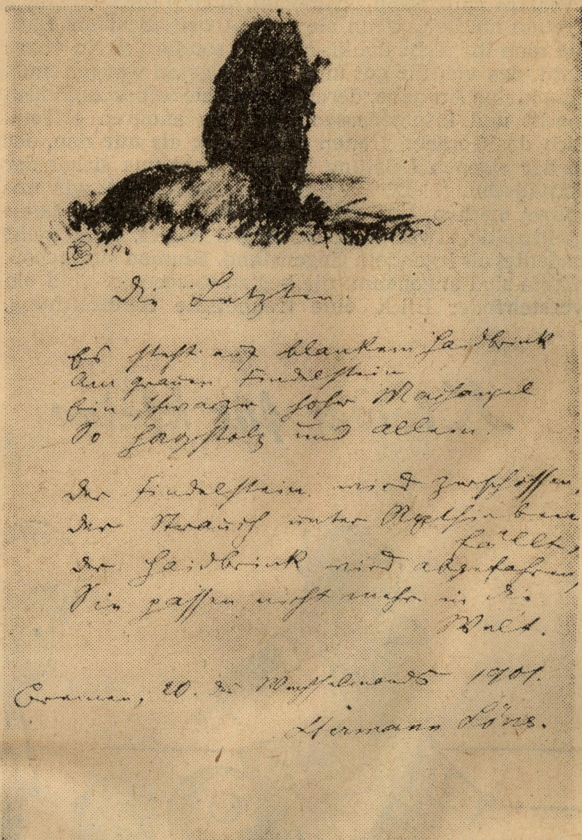 Die Letzten.
Es steht auf blankem Haidbrink
Am grauen Findelstein
Ein schwarzer, hoher Machangel
So hagstolz und allein.
Der Findelstein wird zerschossen,
Der Strauch unter Axthieben
fällt,
Der Haidbrink wird abgefahren,
Sie passen nicht mehr in die
Welt.
20. des 1901.
Hermann Löns.